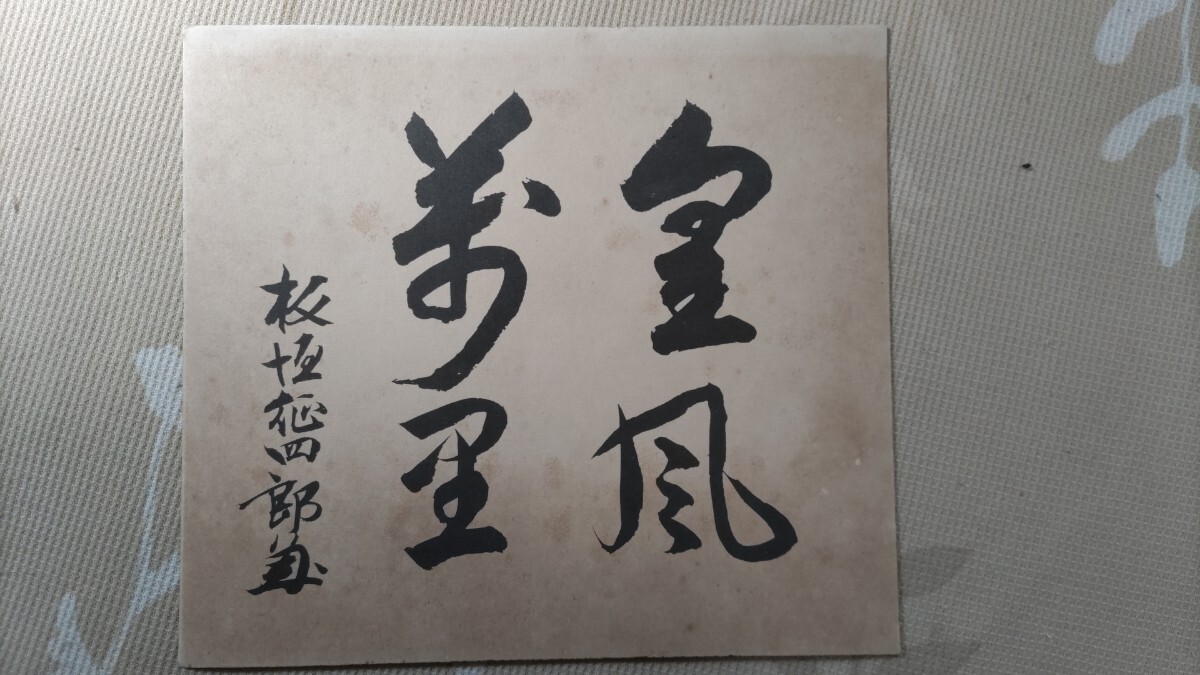 皇風
萬里
板垣征四郎書